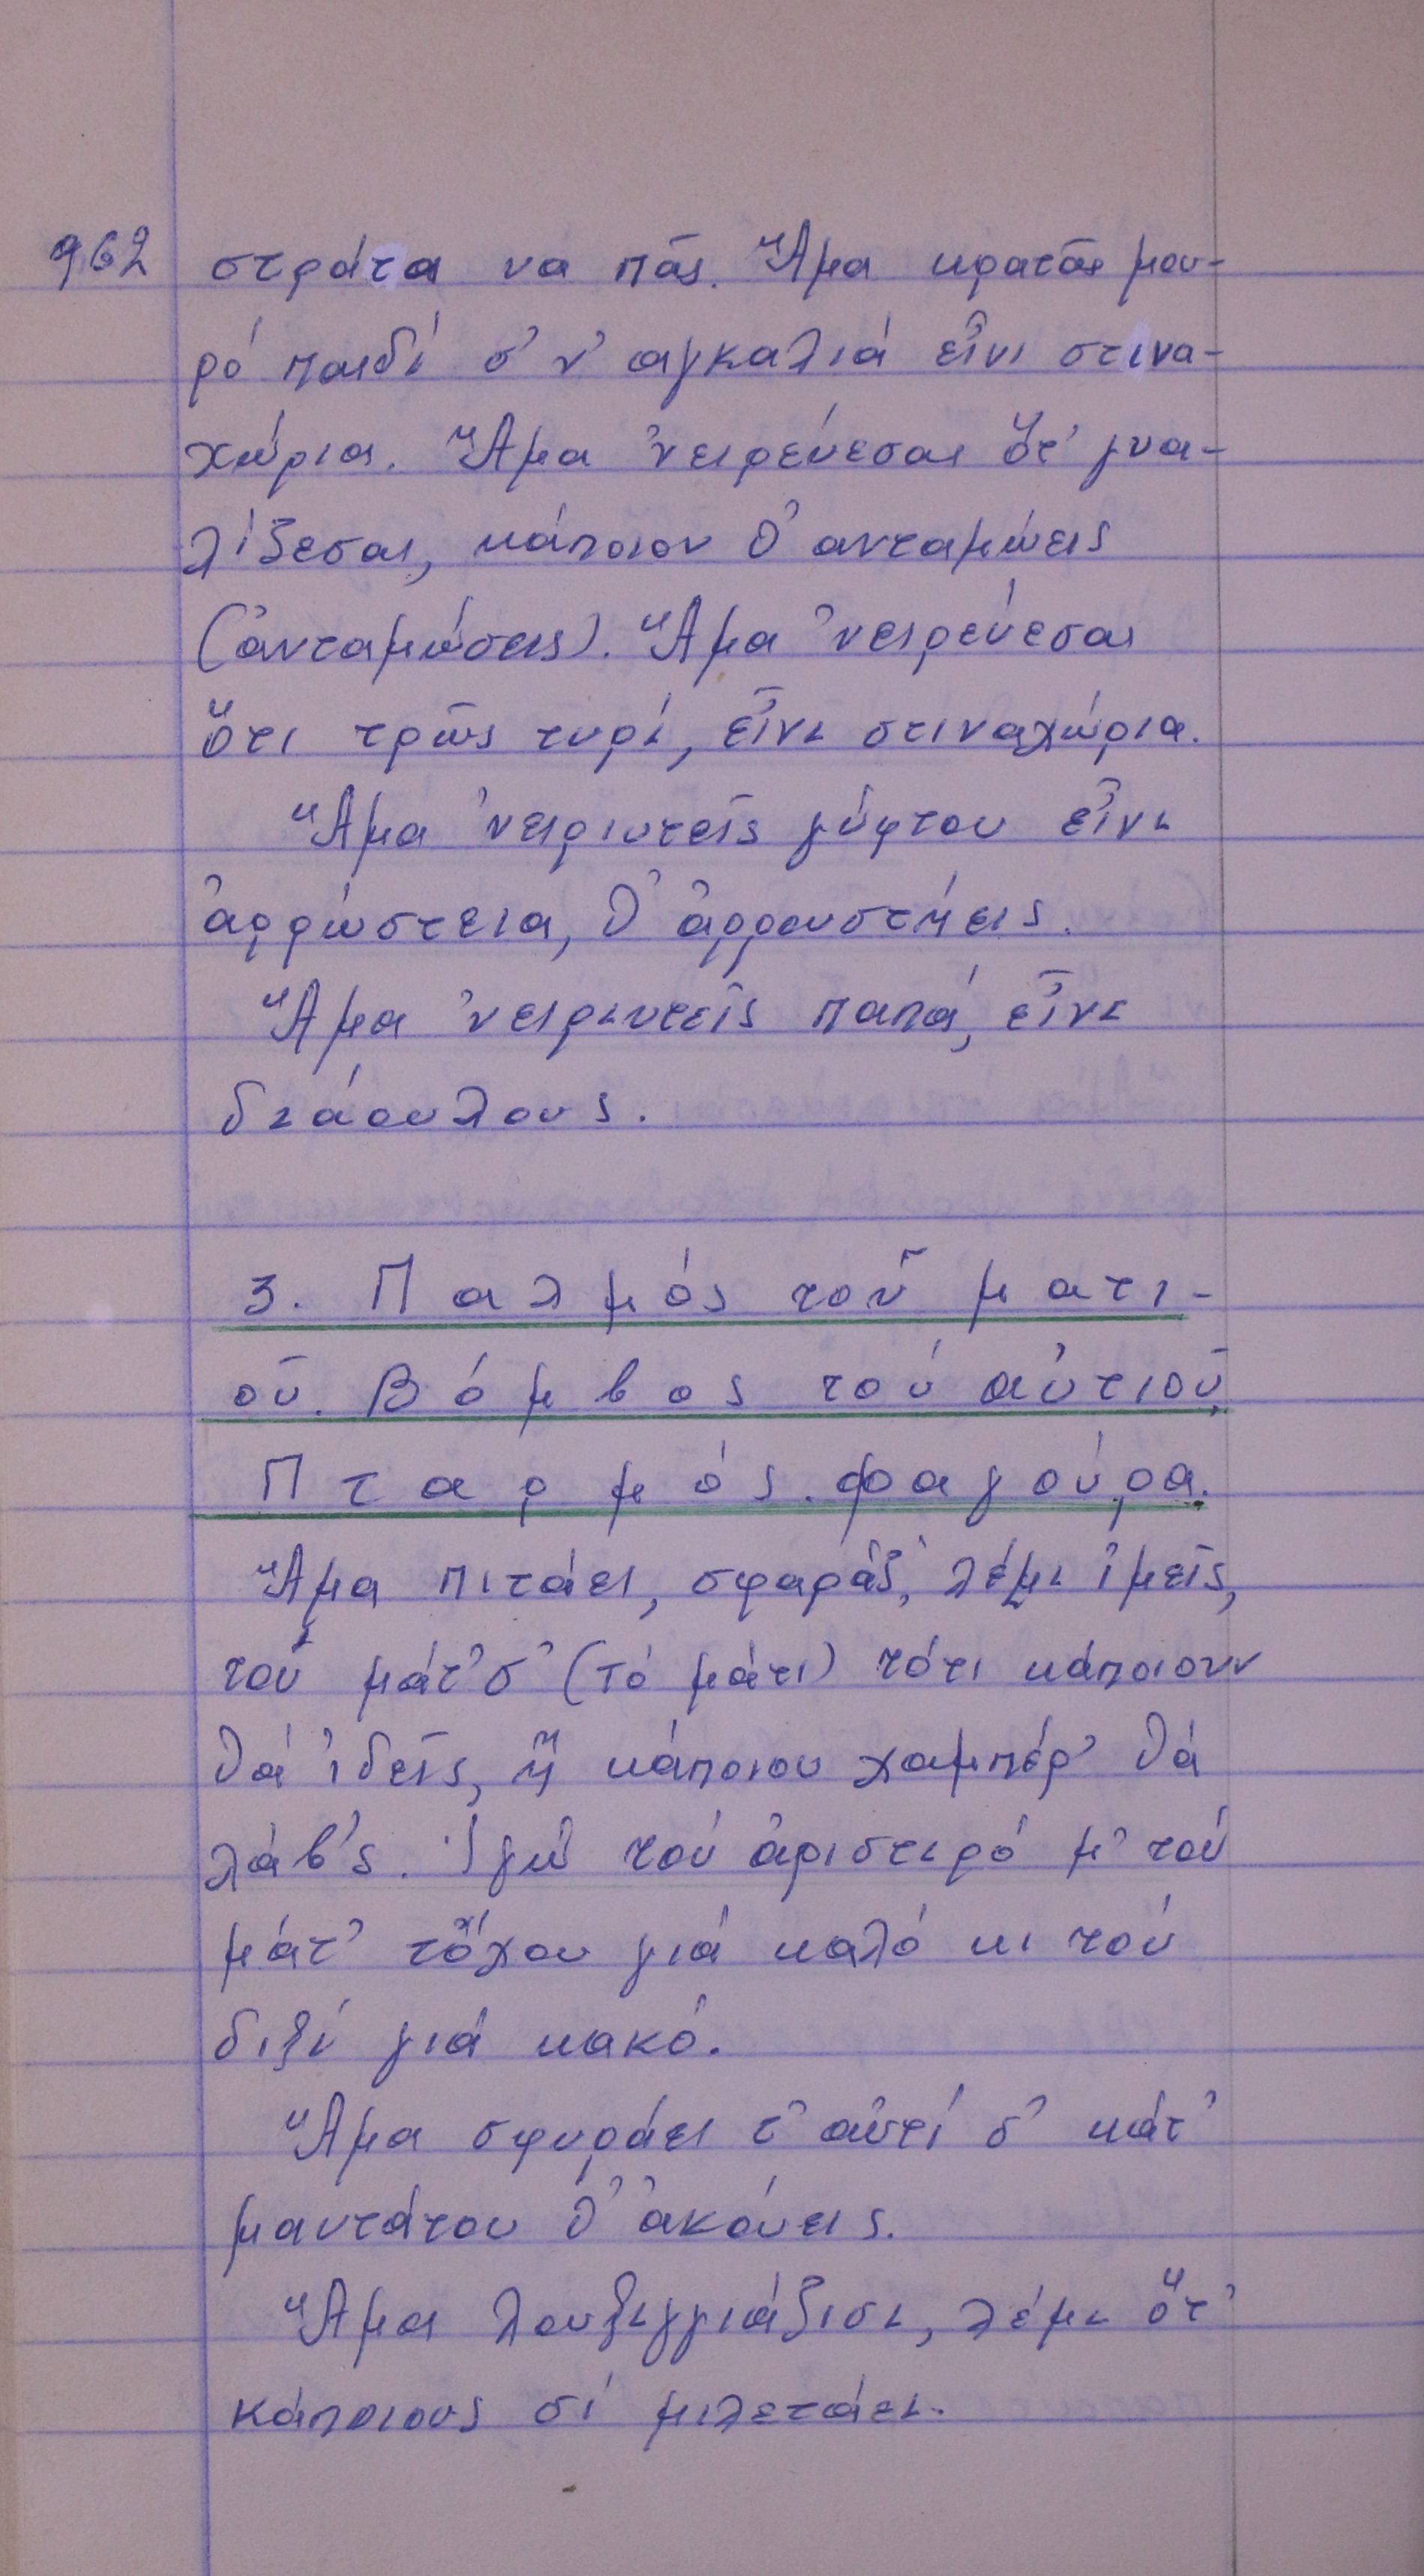 962
στράτα να πᾶς. Ἅμα κρατᾶς μου-
ρό παιδί σ' ν' αγκαλιά εἶνι στινα-
χώρια. Ἅμα 'νειρεύεσαι ὅτ' γυα-
λίζεσαι, κάποιον θ' ανταμώεις
(ἀνταμώσεις). Ἅμα 'νειρεύεσαι
ὅτι τρῶς τυρί, εἶνι στιναχώρια.
Ἅμα 'νειριυτεῖς γύφτου εἶνι
ἀρρώστεια, θ' ἀρρουστήεις.
Ἅμα 'νειριυτεῖς παπά, εἶνι
διάουλους.
3. Παλμός τοῦ ματι-
οῦ. Βόμβος τοὐ αὐτιοῦ,
Πταρμός. Φαγούρα.
Ἅμα πιτάει, σφαράζ', λέμι ἰμεῖς,
τού μάτ' σ' (τό μάτι) τότι κάποιουν
θά ἰδεῖς, ἤ κάποιου χαμπέρ' θά
λάβ'ς. Ἰγώ τού ἀριστιρό μ' τού
μάτ' τὄχου γιά καλό κι τού
διξί γιά κακό.
Ἅμα σφυράει τ' αὐτί σ' κάτ'
μαντάτου θ' ἀκούεις.
Ἅμα λουξιγγιάζισι, λέμι ὅτ'
κάποιους σί μιλετάει.